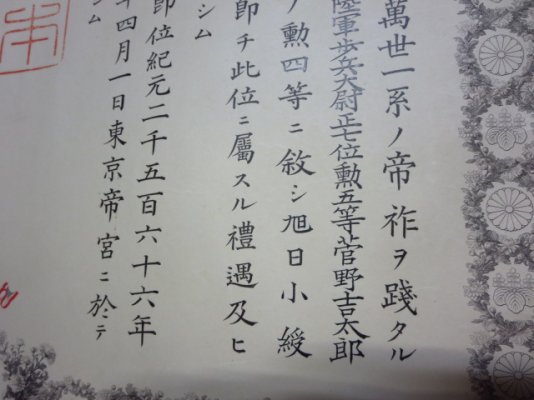 萬世一系ノ帝祚ヲ踐タル
陸軍歩兵大尉正七位勲五等菅野吉太郎
ノ勲四等ニ敘シ旭日小綬
卽チ此位ニ屬スル禮遇及ヒ
シム
卽位紀元二千五百六十六年
年四月一日東京帝宮ニ於テ
ム